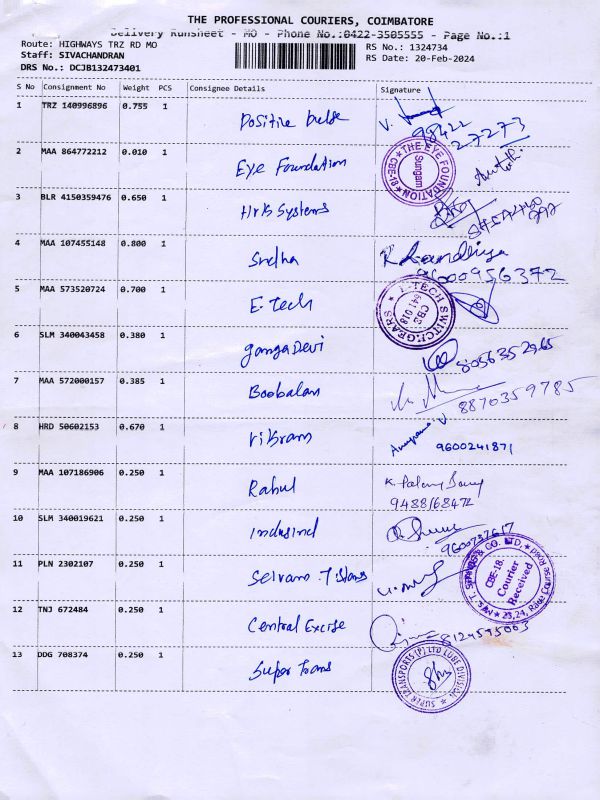 THE PROFESSIONAL COURIERS, COIMBATORE
Delivery Runsheet - MO - Phone No.:0422-3505555 - Page No.:1
Route: HIGHWAYS TRZ RD MO
Staff: SIVACHANDRAN
DRS No.: DCJB132473401
RS No.: 1324734
RS Date: 20-Feb-2024
S No Consignment No Weight PCS Consignee Details Signature
1 TRZ 140996896 0.755 1 Positive pulse
98422
27273
2 MAA 864772212 0.010 1 Eye Foundation
THE EYE FOUNDATION CBE-18 Sungam
3 BLR 4150359476 0.650 1 Systems
4 MAA 107455148 0.800 1 Sridha
9600956372
5 MAA 573520724 0.700 1 E-tech
I-TECH SWITCHGEARS CBE 641 018
6 SLM 340043458 0.380 1 ganga Devi
8056352965
7 MAA 572000157 0.385 1 Boobalan
8870359785
8 HRD 50602153 0.670 1 Vikram
9600241871
9 MAA 107186906 0.250 1 Rahul
9488168472
10 SLM 340019621 0.250 1 Indusind
9600737617
11 PLN 2302107 0.250 1 Selvam
& CO. LTD. CBE-18. Courier Received 23,24, Race Course Road
12 TNJ 672484 0.250 1 Central Excise
8124595063
13 DDG 708374 0.250 1 Super Trans
SUPER TRANSPORTS (P) LTD LUBE DIVISION